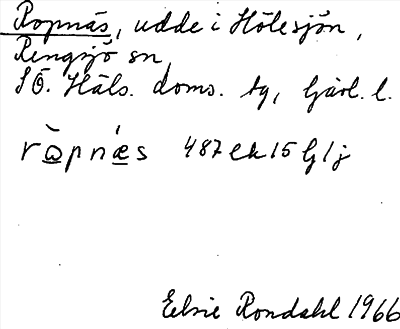 Ropnäs, udde i Hölesjön,
Rengsjö sn,
SÖ. Häls. doms. tg, Gävl. l.
rò̱pnǽ̱s 487 ek 15 G/j
Elsie Rondahl 1966